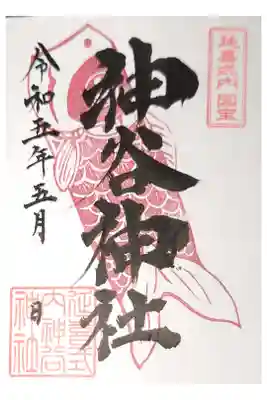 延喜式内 国宝
神谷神社
令和五年五月
日
延喜式
内神谷
神社